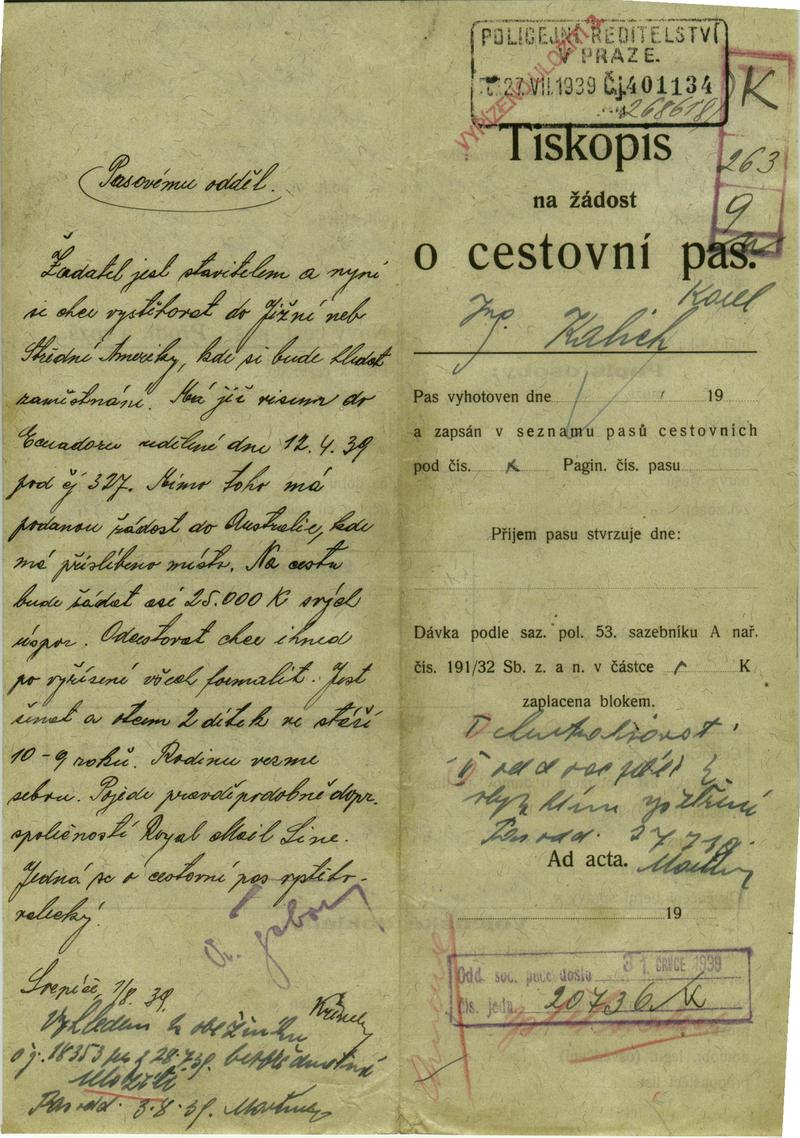 Pasovému odděl.
Žadatel jest stavitelem a nyní
si chce vystěhovat do Jižní neb
Střední Ameriky, kde si bude hledat
zaměstnání. Má již visum do
Ecuadoru udělené dne 12.4.39
pod čj 327. Mimo toho má
podanou žádost do Australie, kde
má přislíbeno místo. Na cestu
bude žádat asi 25.000 K svých
úspor. Odcestovat chce ihned
po vyřízení všech formalit. Jest
ženat a otcem 2 dítek ve stáří
10-9 roků. Rodinu vezme
sebou. Pojede pravděpodobně dopr.
společností Royal Mail Line.
Jedná se o cestovní pas vystěho-
valecký.
1/8. 39.
Vzhledem k oběžníku
čj. 18353 29.7.39.
uložiti
Pas odd. 3.8.39.
POLICEJNÍ ŘEDITELSTVÍ
V PRAZE.
27.VII.1939 Čj. 401134
VYŘÍZENO ULOŽITI
K
263
9
Tiskopis
na žádost
o cestovní pas.
Ing. Kalich Karel
Pas vyhotoven dne 19
a zapsán v seznamu pasů cestovních
pod čís. Pagin. čís. pasu
Příjem pasu stvrzuje dne:
Dávka podle saz. pol. 53. sazebníku A nař.
čís. 191/32 Sb. z. a n. v částce K
zaplacena blokem.
Pas odd.
Ad acta.
19
Odd. soc. péče došlo 31. ČRVCE 1939
čís. jedn. 20736